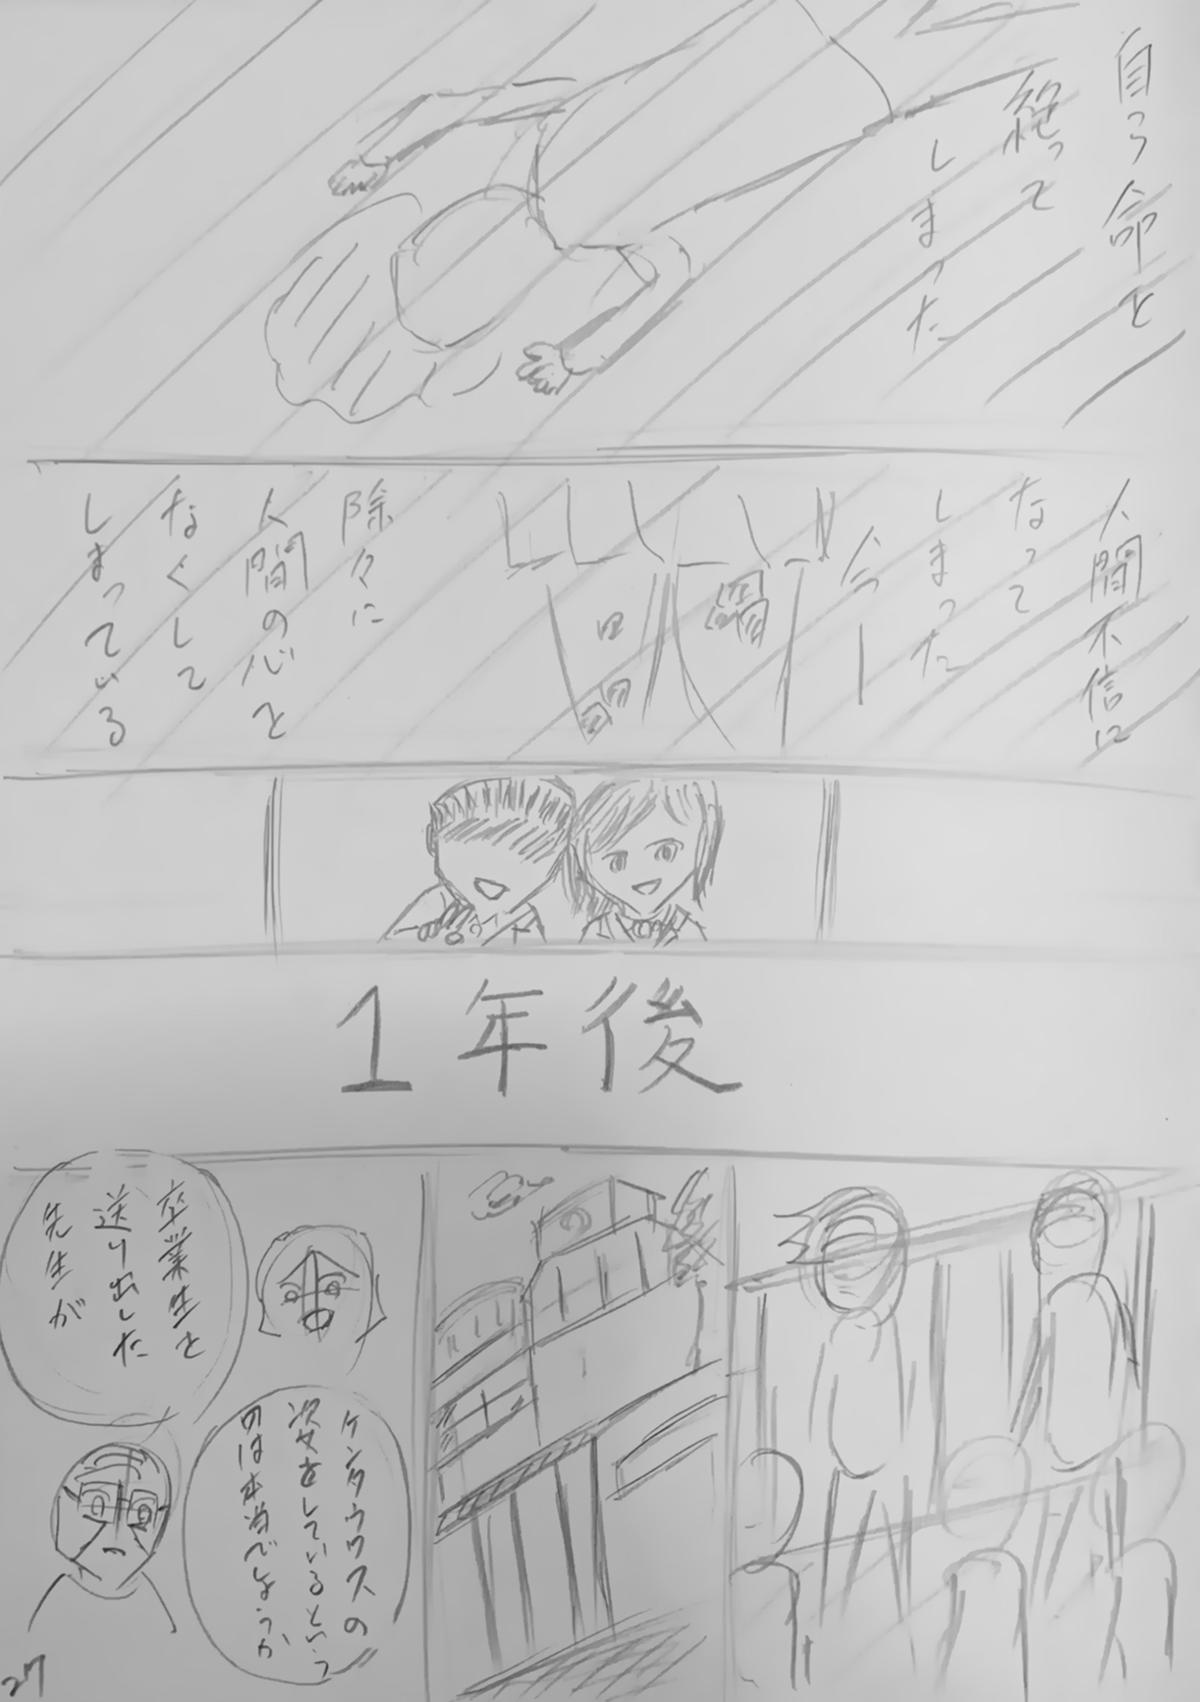 自ら命を
絶って
しまった
人間不信に
なって
しまった
今ー
除々に
人間の心を
なくして
しまっている
1年後
卒業生を
送り出した
先生が
ケンタウロスの
姿をしているという
のは本当でしょうか
27